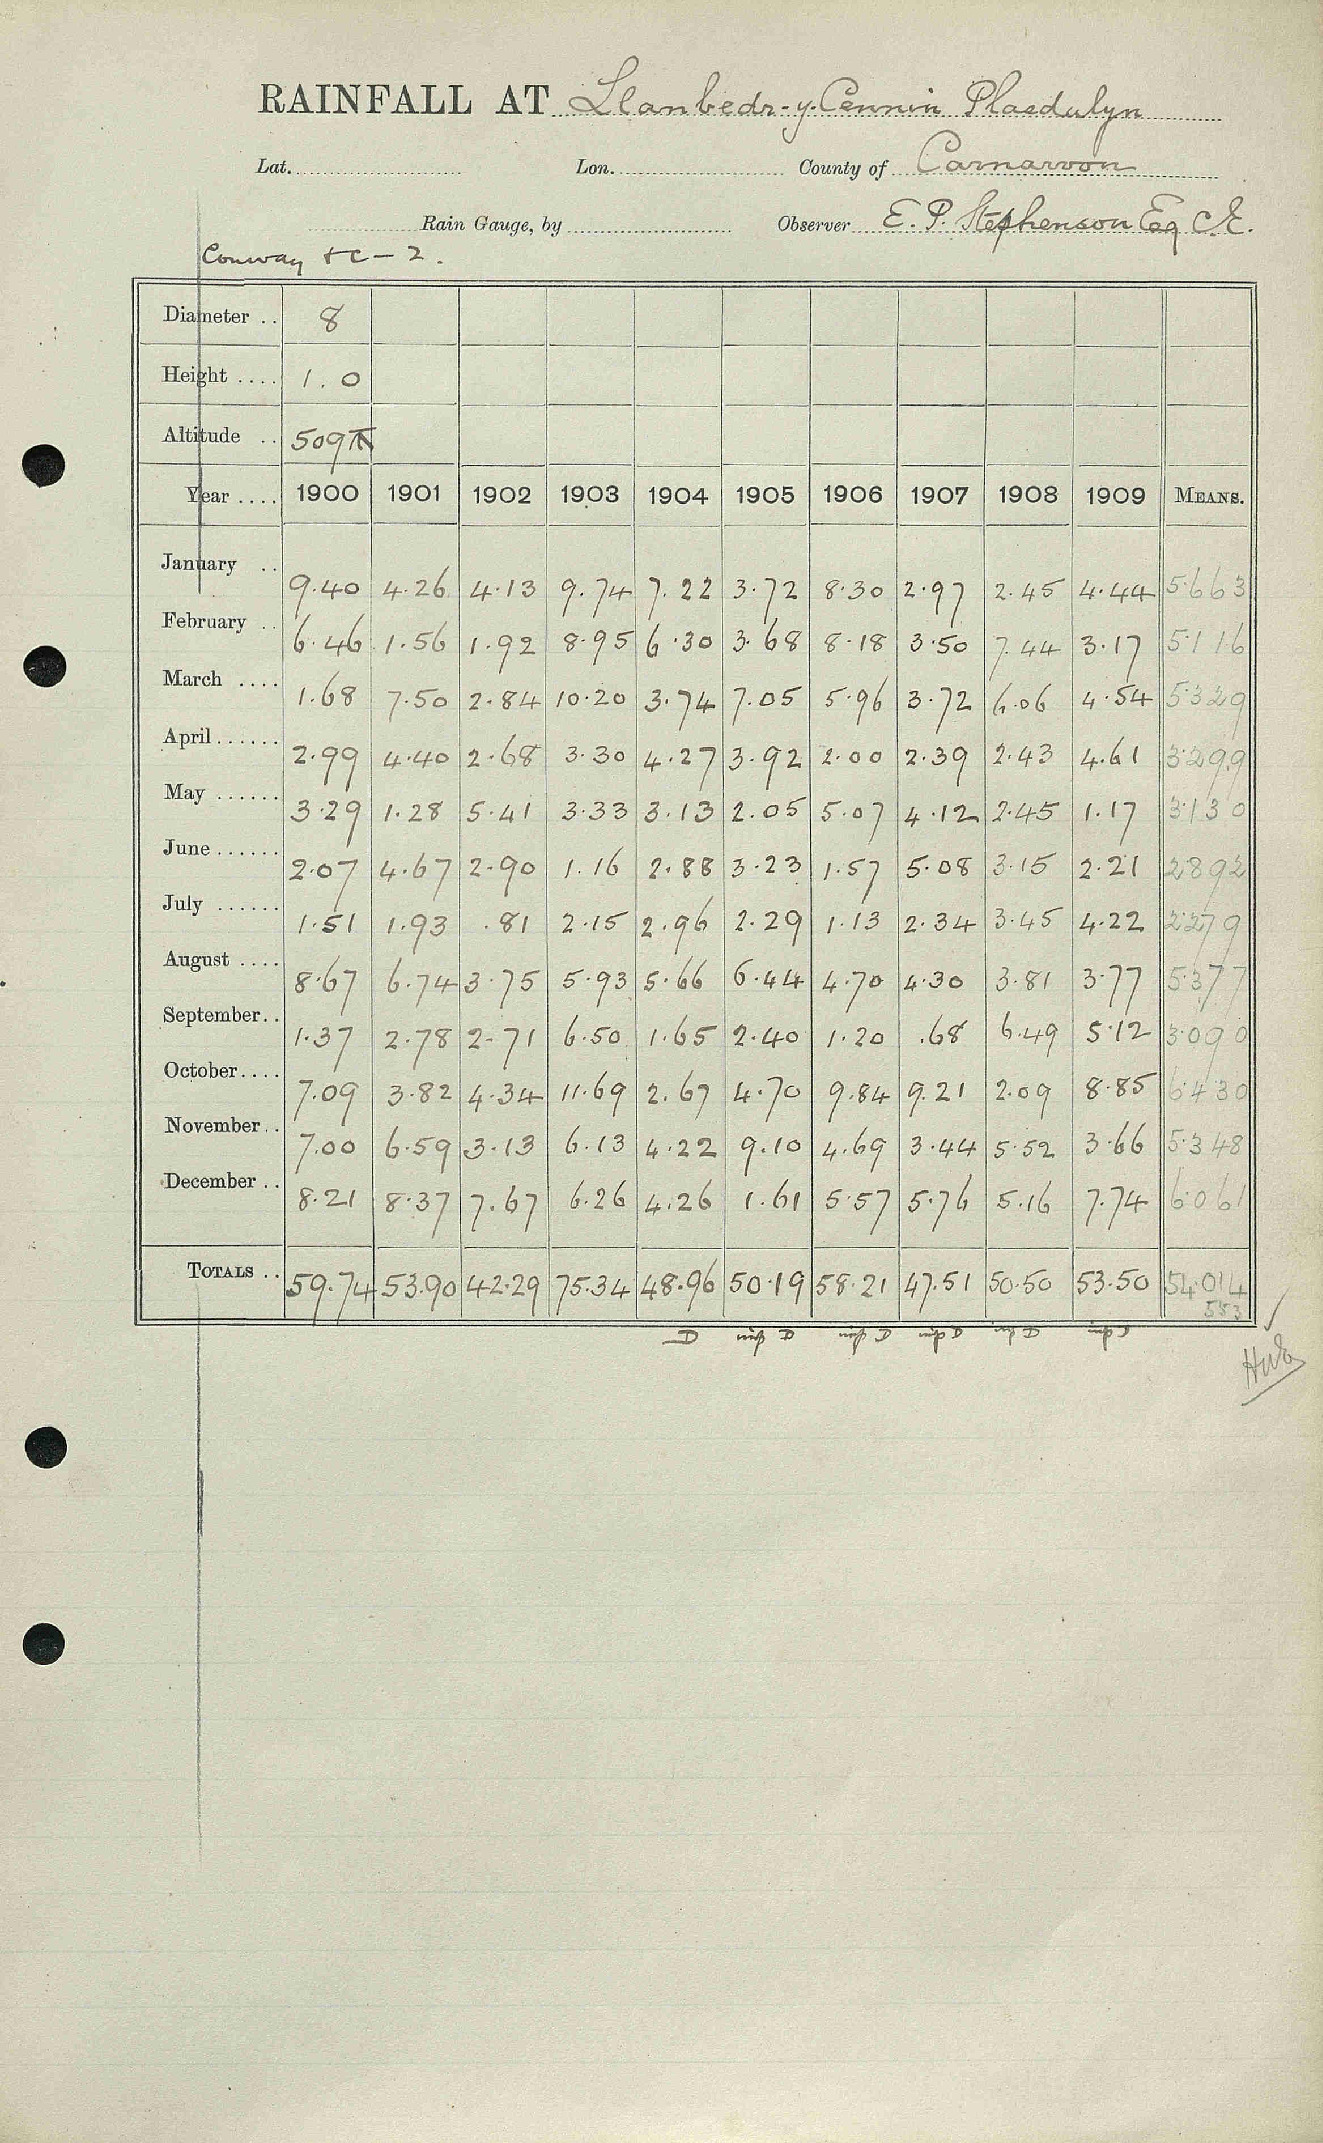 RAINFALL AT Llanbedr-y-Cennin Plasdulyn
Lat. Lon. County of Carnarvon
Rain Gauge, by Observer E. P. Stephenson Esq C.E.
Conway &c - 2.
Diameter .. 8
Height .... 1.0
Altitude .. 509 ft
Year .... 1900 1901 1902 1903 1904 1905 1906 1907 1908 1909 MEANS.
January .. 9.40 4.26 4.13 9.74 7.22 3.72 8.30 2.97 2.45 4.44 5.663
February .. 6.46 1.56 1.92 8.95 6.30 3.68 8.18 3.50 7.44 3.17 5.116
March .... 1.68 7.50 2.84 10.20 3.74 7.05 5.96 3.72 6.06 4.54 5.329
April...... 2.99 4.40 2.68 3.30 4.27 3.92 2.00 2.39 2.43 4.61 3.299
May ...... 3.29 1.28 5.41 3.33 3.13 2.05 5.07 4.12 2.45 1.17 3.130
June...... 2.07 4.67 2.90 1.16 2.88 3.23 1.57 5.08 3.15 2.21 2.892
July ...... 1.51 1.93 .81 2.15 2.96 2.29 1.13 2.34 3.45 4.22 2.279
August .... 8.67 6.74 3.75 5.93 5.66 6.44 4.70 4.30 3.81 3.77 5.377
September.. 1.37 2.78 2.71 6.50 1.65 2.40 1.20 .68 6.49 5.12 3.090
October.... 7.09 3.82 4.34 11.69 2.67 4.70 9.84 9.21 2.09 8.85 6.430
November.. 7.00 6.59 3.13 6.13 4.22 9.10 4.69 3.44 5.52 3.66 5.348
December .. 8.21 8.37 7.67 6.26 4.26 1.61 5.57 5.76 5.16 7.74 6.061
TOTALS .. 59.74 53.90 42.29 75.34 48.96 50.19 58.21 47.51 50.50 53.50 54.014
553